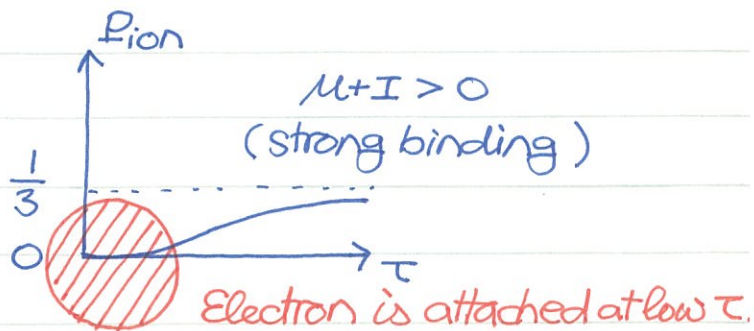 P_ion
μ+I > 0
(strong binding)
1/3
0
τ
Electron is attached at low τ.